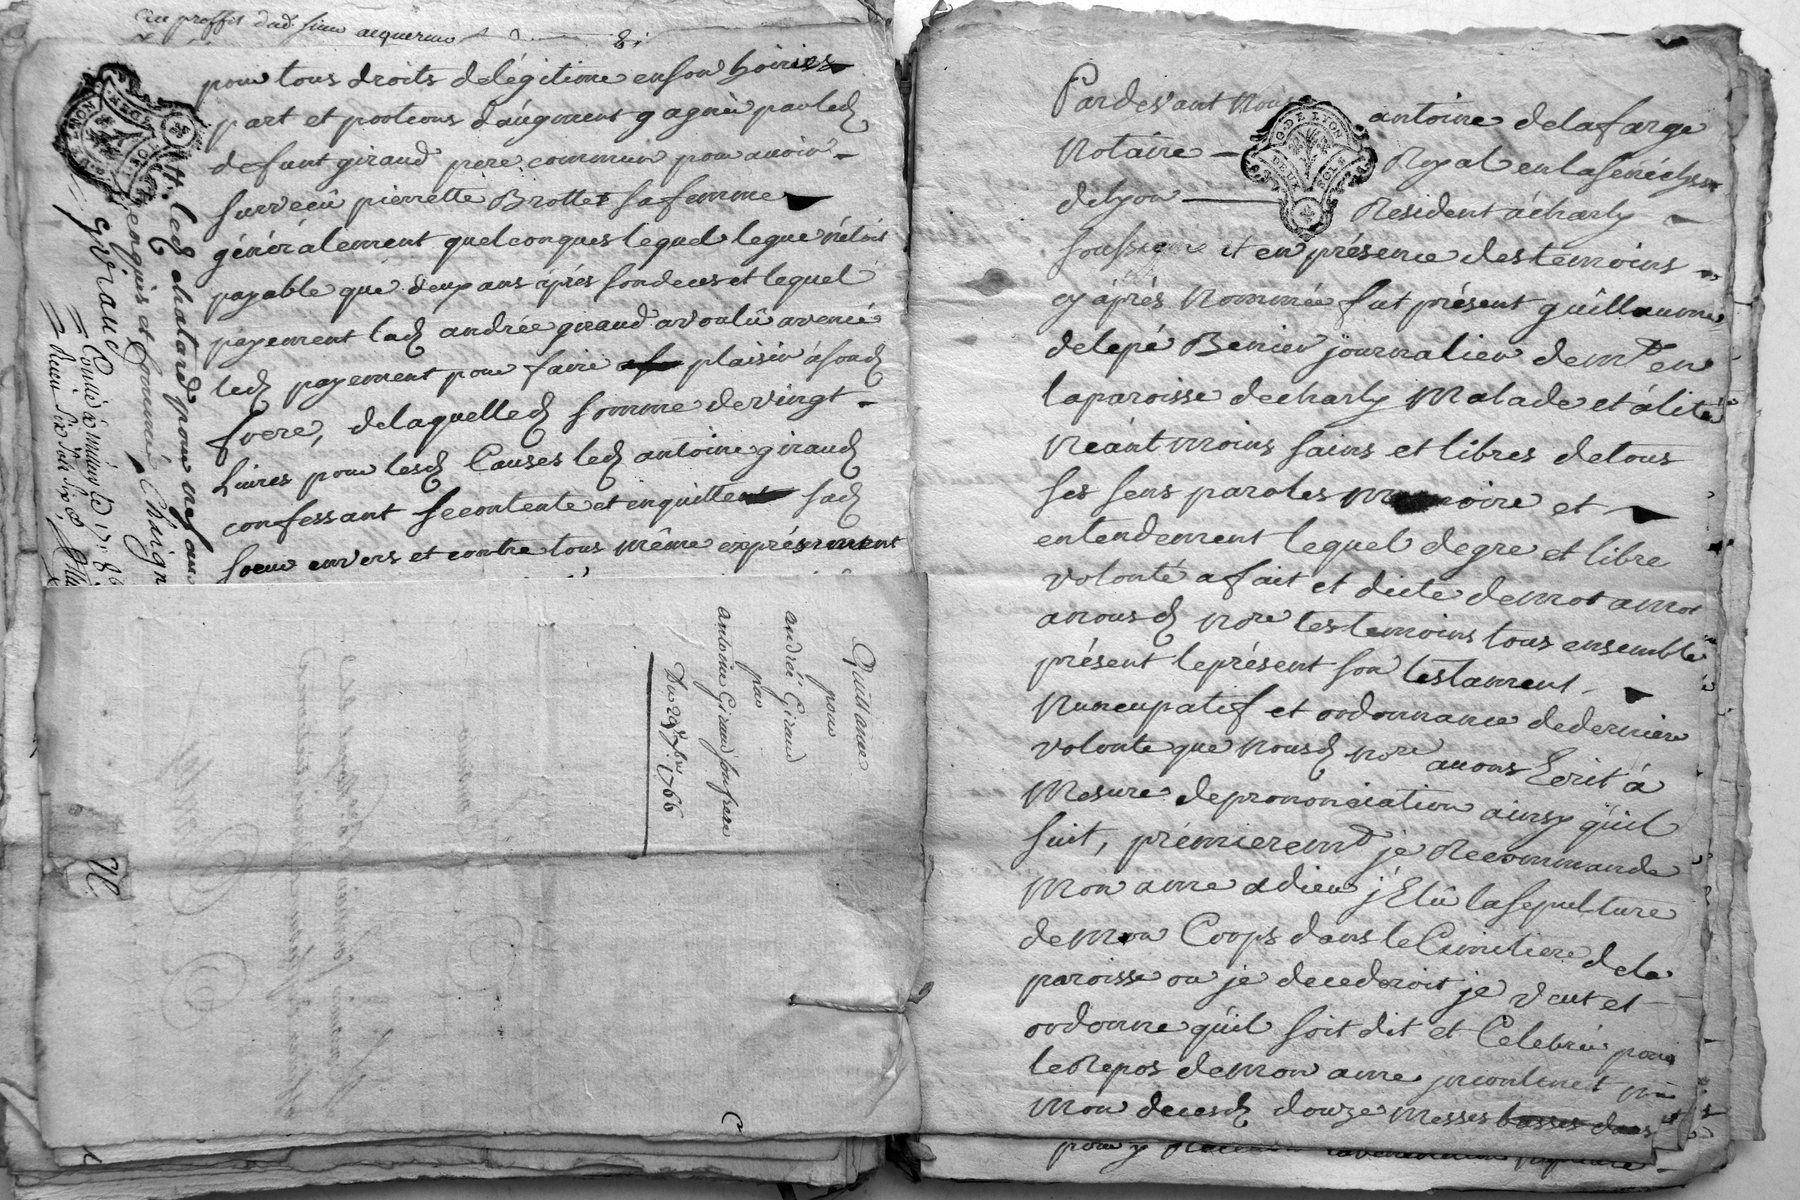 au proffit dud. sieur acquereur
8.
pour tous droits de légitime en son hoiries
part et portions d'augment gagnée par led.
defunt giraud pere commun pour avoir
survecû pierrette Brottet sa femme
généralement quelconques lequel legue n'étoit
payable que deux ans après son deces et lequel
payement lad. andrée giraud a voulû avencé
led. payement pour faire plaisir à sond.
frere, de laquelle d. somme de vingt
Livres pour lesd. Causes led. antoine giraud
confessant se contente et enquitte sad.
soeur envers et contre tous même expréssement
led. chatard pour ne sav
enquis et sommé
giraud
Conlé à
Reçu six sols six d.
Quittance
pour
andreé Giraud
par
antoine Giraud son frere
Du 29 7bre 1766
Pardevant Nous antoine delafarge
Notaire Royal en la sénéchsée
de lyon Resident à charly
G. DE LYON
DEUX SOLS
soussigné et en présence des temoins
cy après Nommée fut présent guillaume
delepé Benier journalier demt. en
la paroisse de charly Malade et àlité
Néantmoins sains et libres de tous
ses sens paroles memoire et
entendement lequel de gre et libre
volonté a fait et dicte de mot a mot
a nous d. Nore les temoins tous ensemble
présent le présent son testament
Nuncupatif et ordonnance de derniere
volonte que Nous d. Nore avons Ecrit à
Mesure de prononciation ainsy qu'il
suit, prémieremt. je Recommande
Mon ame a dieu j'Elû la sepulture
de Mon Corps dans le Cimitiere de la
paroisse ou je decederoit je veut et
ordonne qu'il soit dit et Celebrée pour
le Repos de Mon ame incontinet
Mon deces d. douze Messes basses dans
pour y